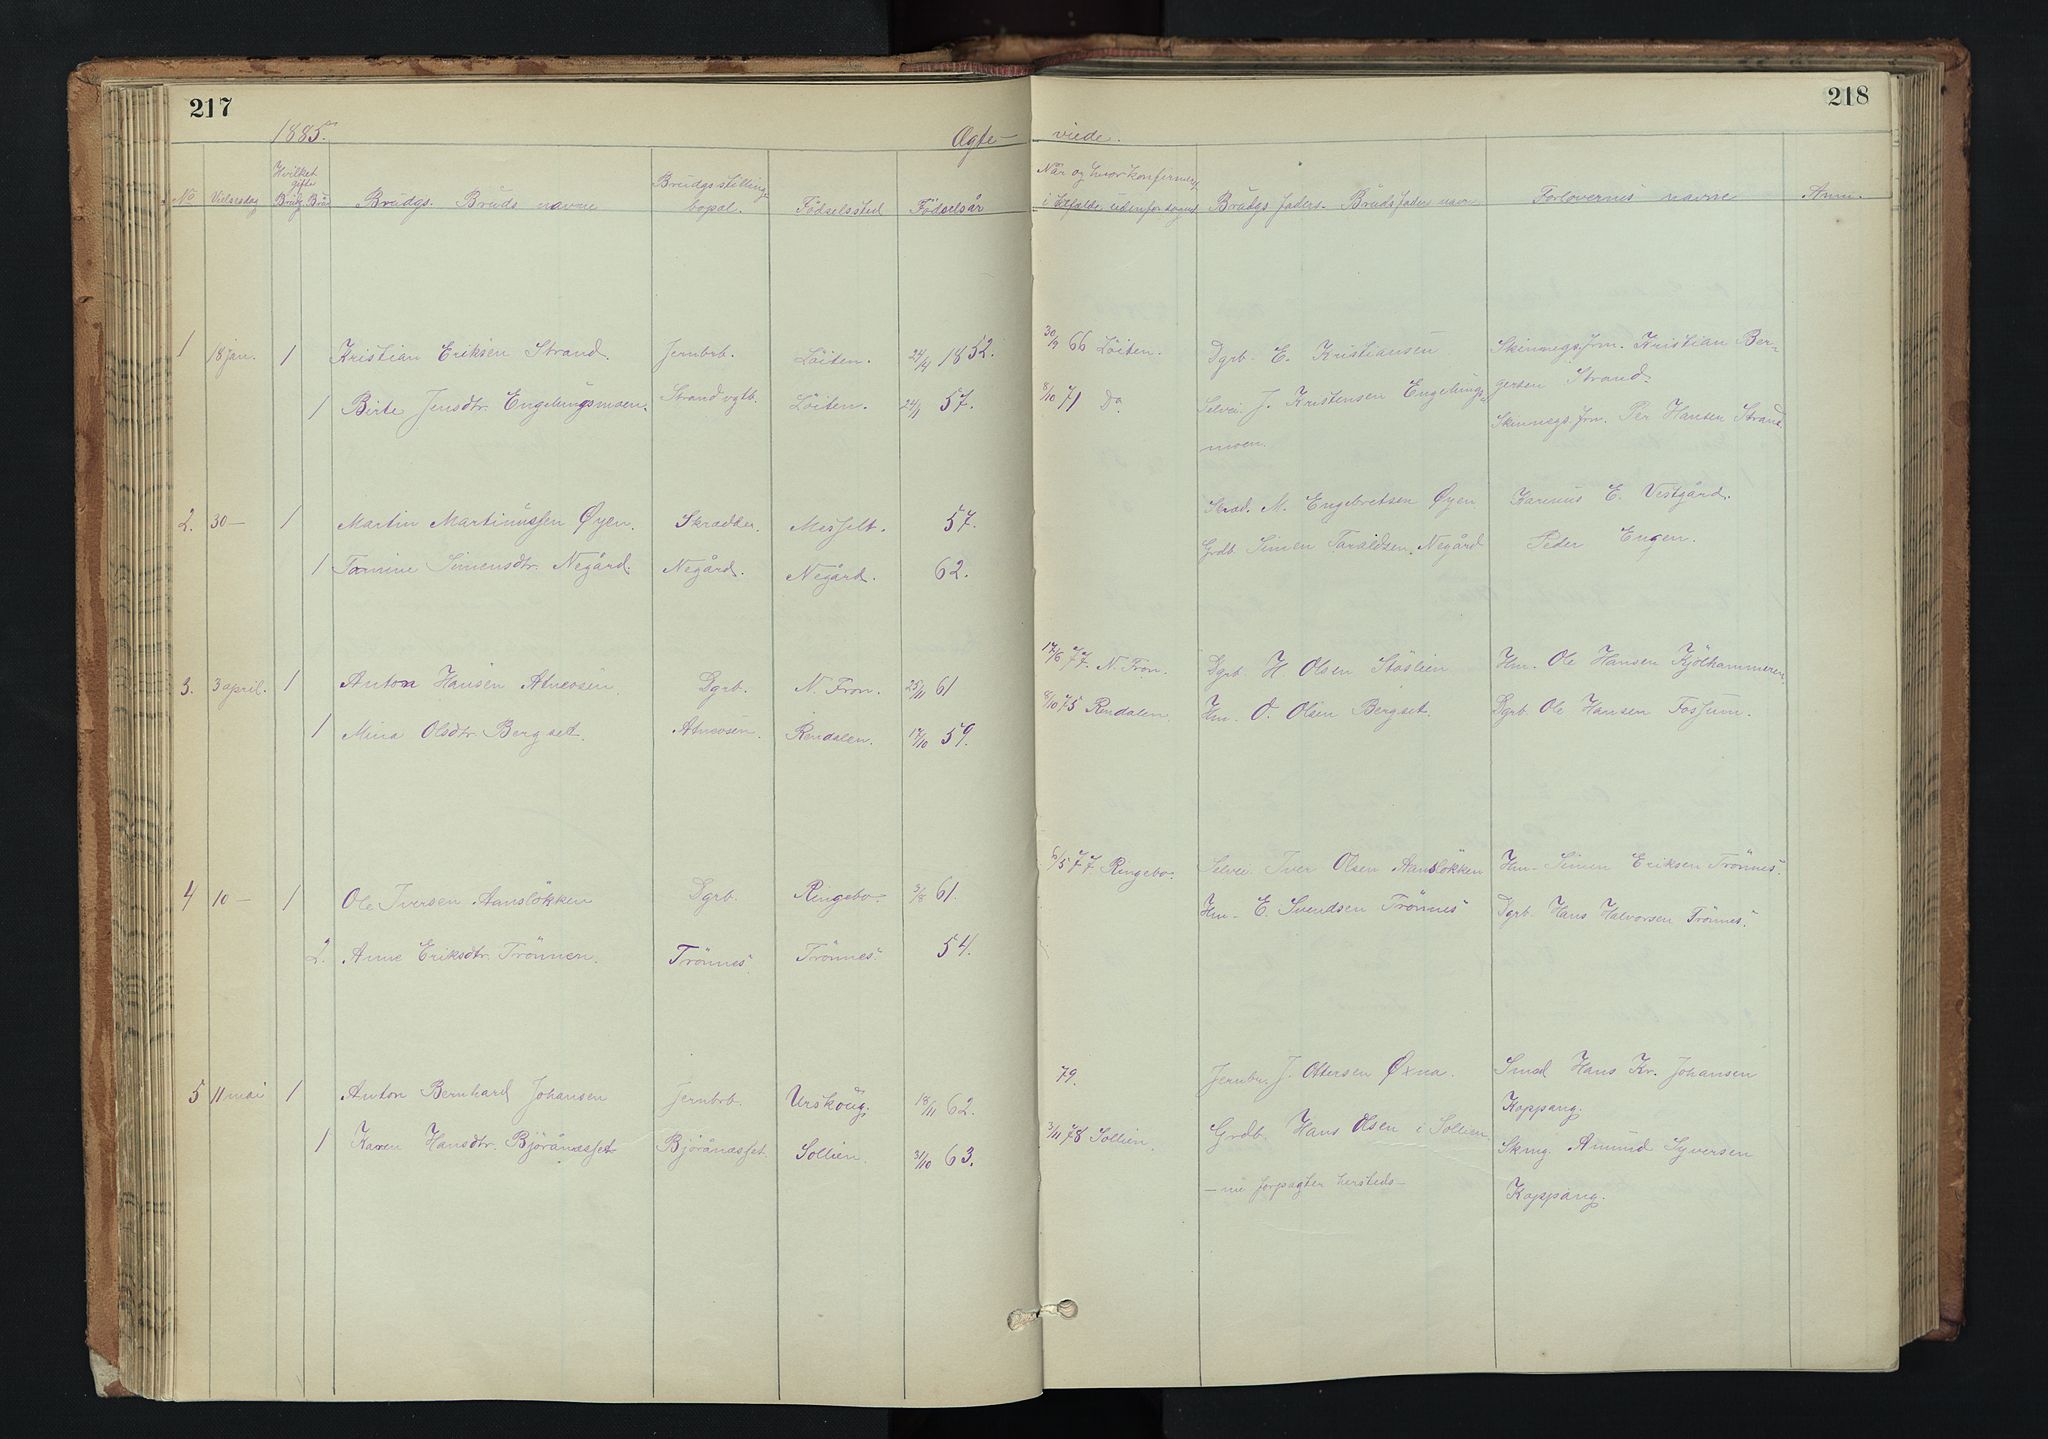 217
218
1885.
Ægte-
viede.
No
Vielsesdag
Hvilket gifte
Brudg. Brud
Brudgs. Bruds navne
Brudgs stilling bopæl.
Födselssted
Födselsår
Når og hvor konfirmert
i tilfælde udenfor sognet
Brudgs faders. Bruds faders navn
Forlovernes navne
Anm.
1 18 jan. 1 Kristian Eriksen Strand. Jernbrb. Löiten. 24/4 1852. 30/9 66 Löiten. Dgrb. E. Kristiansen Skinnegs.frm. Kristian Ber-
1 Birte Jensdtr. Engelingsmoen. Strand vgtb. Löiten. 24/1 57. 8/10 71 Do. Selvei. J. Kristensen Engelings- gersen Strand.
moen. Skinnegs.frm. Per Hansen Strand
2. 30- 1 Martin Martinussen Øyen. Skrædder. Messelt. 57. Skræd. M. Engebretsen Øyen Karinus E. Vestgård.
1 Tomine Simensdtr. Negård. Negård. Negård. 62. Grdb. Simen Taraldsen Negård Peder Engen.
3. 3 april. 1 Anton Hansen Atneosen Dgrb. N. Fron. 25/11 61 17/6 77. N. Fron. Dgrb. H Olsen Stöslien Hm. Ole Hansen Kjölhammeren.
1 Mina Olsdtr. Bergset. Atneosen. Rendalen. 17/10 59. 8/10 75 Rendalen. Hm. O. Olsen Bergset. Dgrb. Ole Hansen Fossum.
4 10- 1 Ole Iversen Aanslökken Dgrb. Ringebo. 3/8 61. 6/5 77. Ringebo. Selvei. Iver Olsen Aanslökken Hm. Simen Eriksen Trönnes.
2. Anne Eriksdtr. Trönnen. Trönnes. Trönnes. 54. Hm- E. Svendsen Trönnes Dgrb. Hans Halvorsen Trönnes.
5 11 mai 1 Anton Bernhard Johansen Jernbrb. Urskoug. 18/11 62. 79. Jernbr. J. Ottersen Øxna. Smed Hans Kr. Johansen
Koppang.
1 Karen Hansdtr. Björånæsset Björånæsset. Sollien. 31/10 63. 3/11 78 Sollien. Grdb. Hans Olsen i Sollien Skmg. Amund Syversen
-nu forpagter hersteds- Koppang.